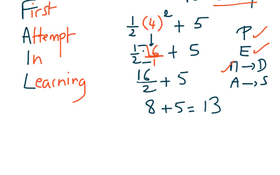 First
Attempt
In
Learning
1/2 (4)² + 5
1/2 · 16/1 + 5
16/2 + 5
8 + 5 = 13
P ✓
E ✓
✓ M → D
A → S